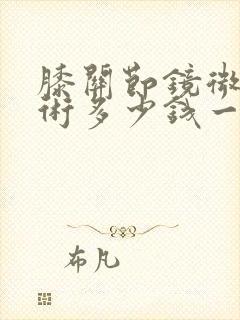 膝關節鏡微
術多少錢一
布凡